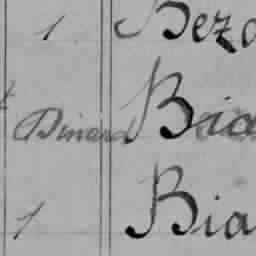 1 Beza
Dinard Bia
1 Bia